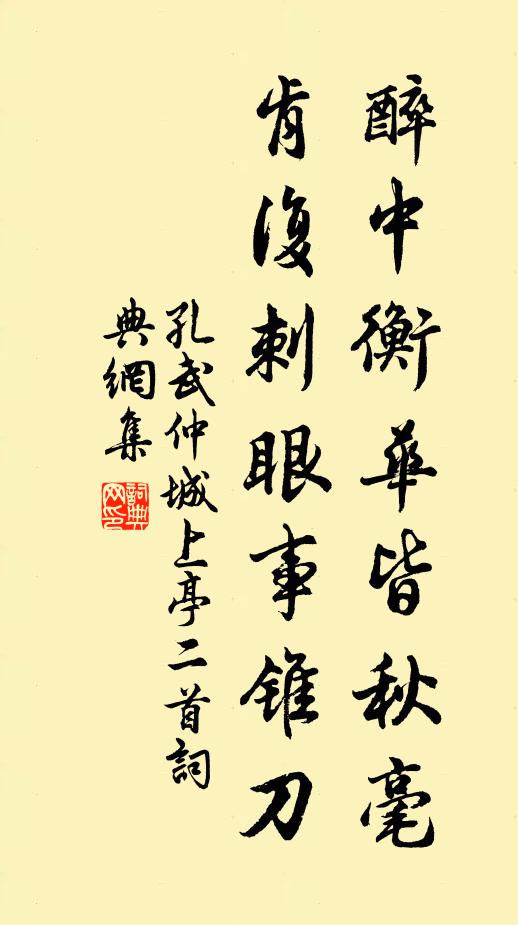 醉中衡華皆秋毫
肯復刺眼事錐刀
孔武仲城上亭二首詞
典網集
詞典网印